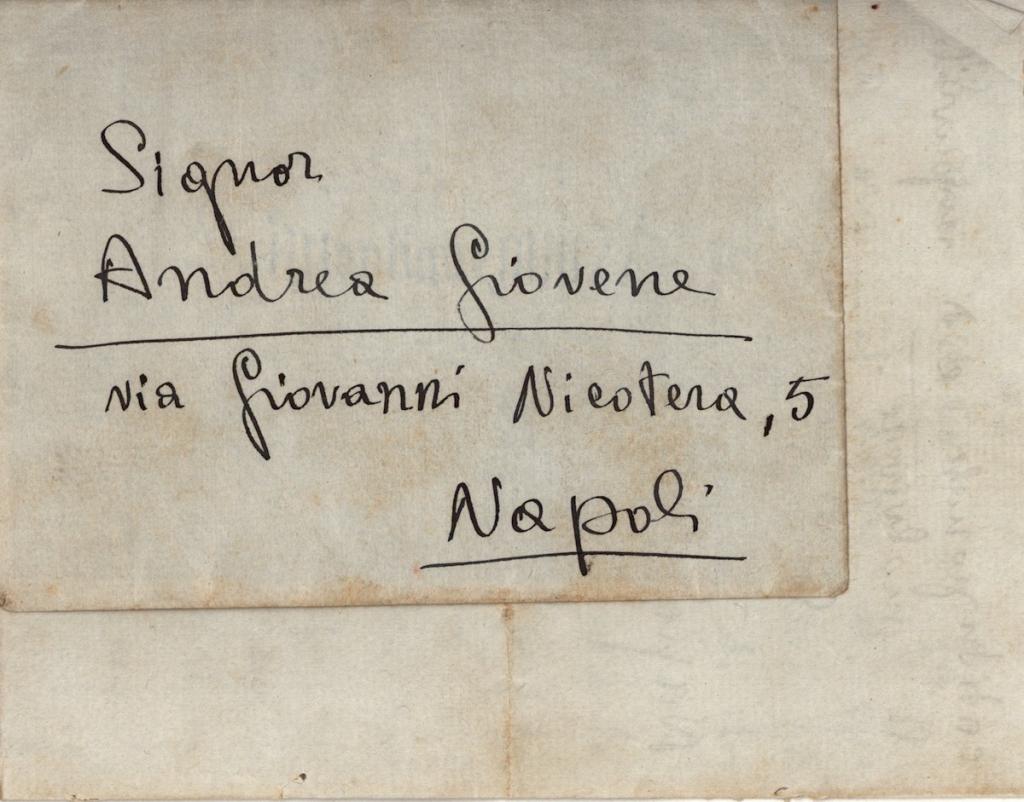 Signor
Andrea Giovene
via Giovanni Nicotera, 5
Napoli